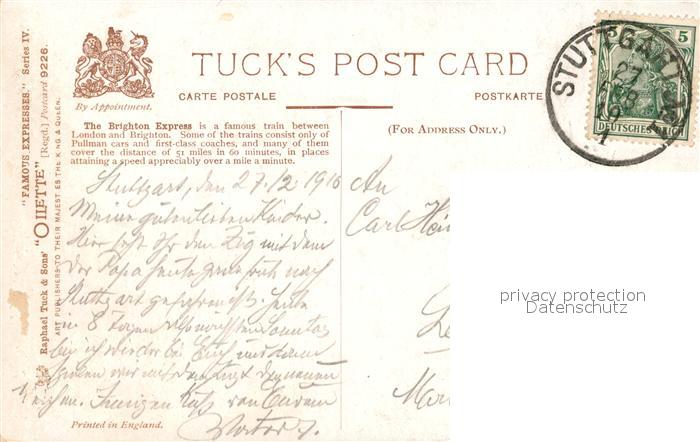 TUCK'S POST CARD
By Appointment.
CARTE POSTALE
POSTKARTE
"FAMOUS EXPRESSES." Series IV.
Raphael Tuck & Sons' "OILETTE" [Regd.] Postcard 9226.
ART PUBLISHERS TO THEIR MAJESTIES THE KING & QUEEN.
The Brighton Express is a famous train between
London and Brighton. Some of the trains consist only of
Pullman cars and first-class coaches, and many of them
cover the distance of 51 miles in 60 minutes, in places
attaining a speed appreciably over a mile a minute.
(FOR ADDRESS ONLY.)
STUTTGART
5
DEUTSCHES REICH
Stuttgart, den 27./2 1910
Meine guten lieben Kinder.
Hier seht Ihr den Zug mit dem
der Papa heute ganz früh nach
Stuttgart gefahren ist. Heute
in 8 Tagen also nächsten Sonntag
bin ich wieder bei Euch und dann
wir mit dem neuen
Zeichen. Innigen Kuss von Eurem
Vater
An
Carl
privacy protection
Datenschutz
Printed in England.